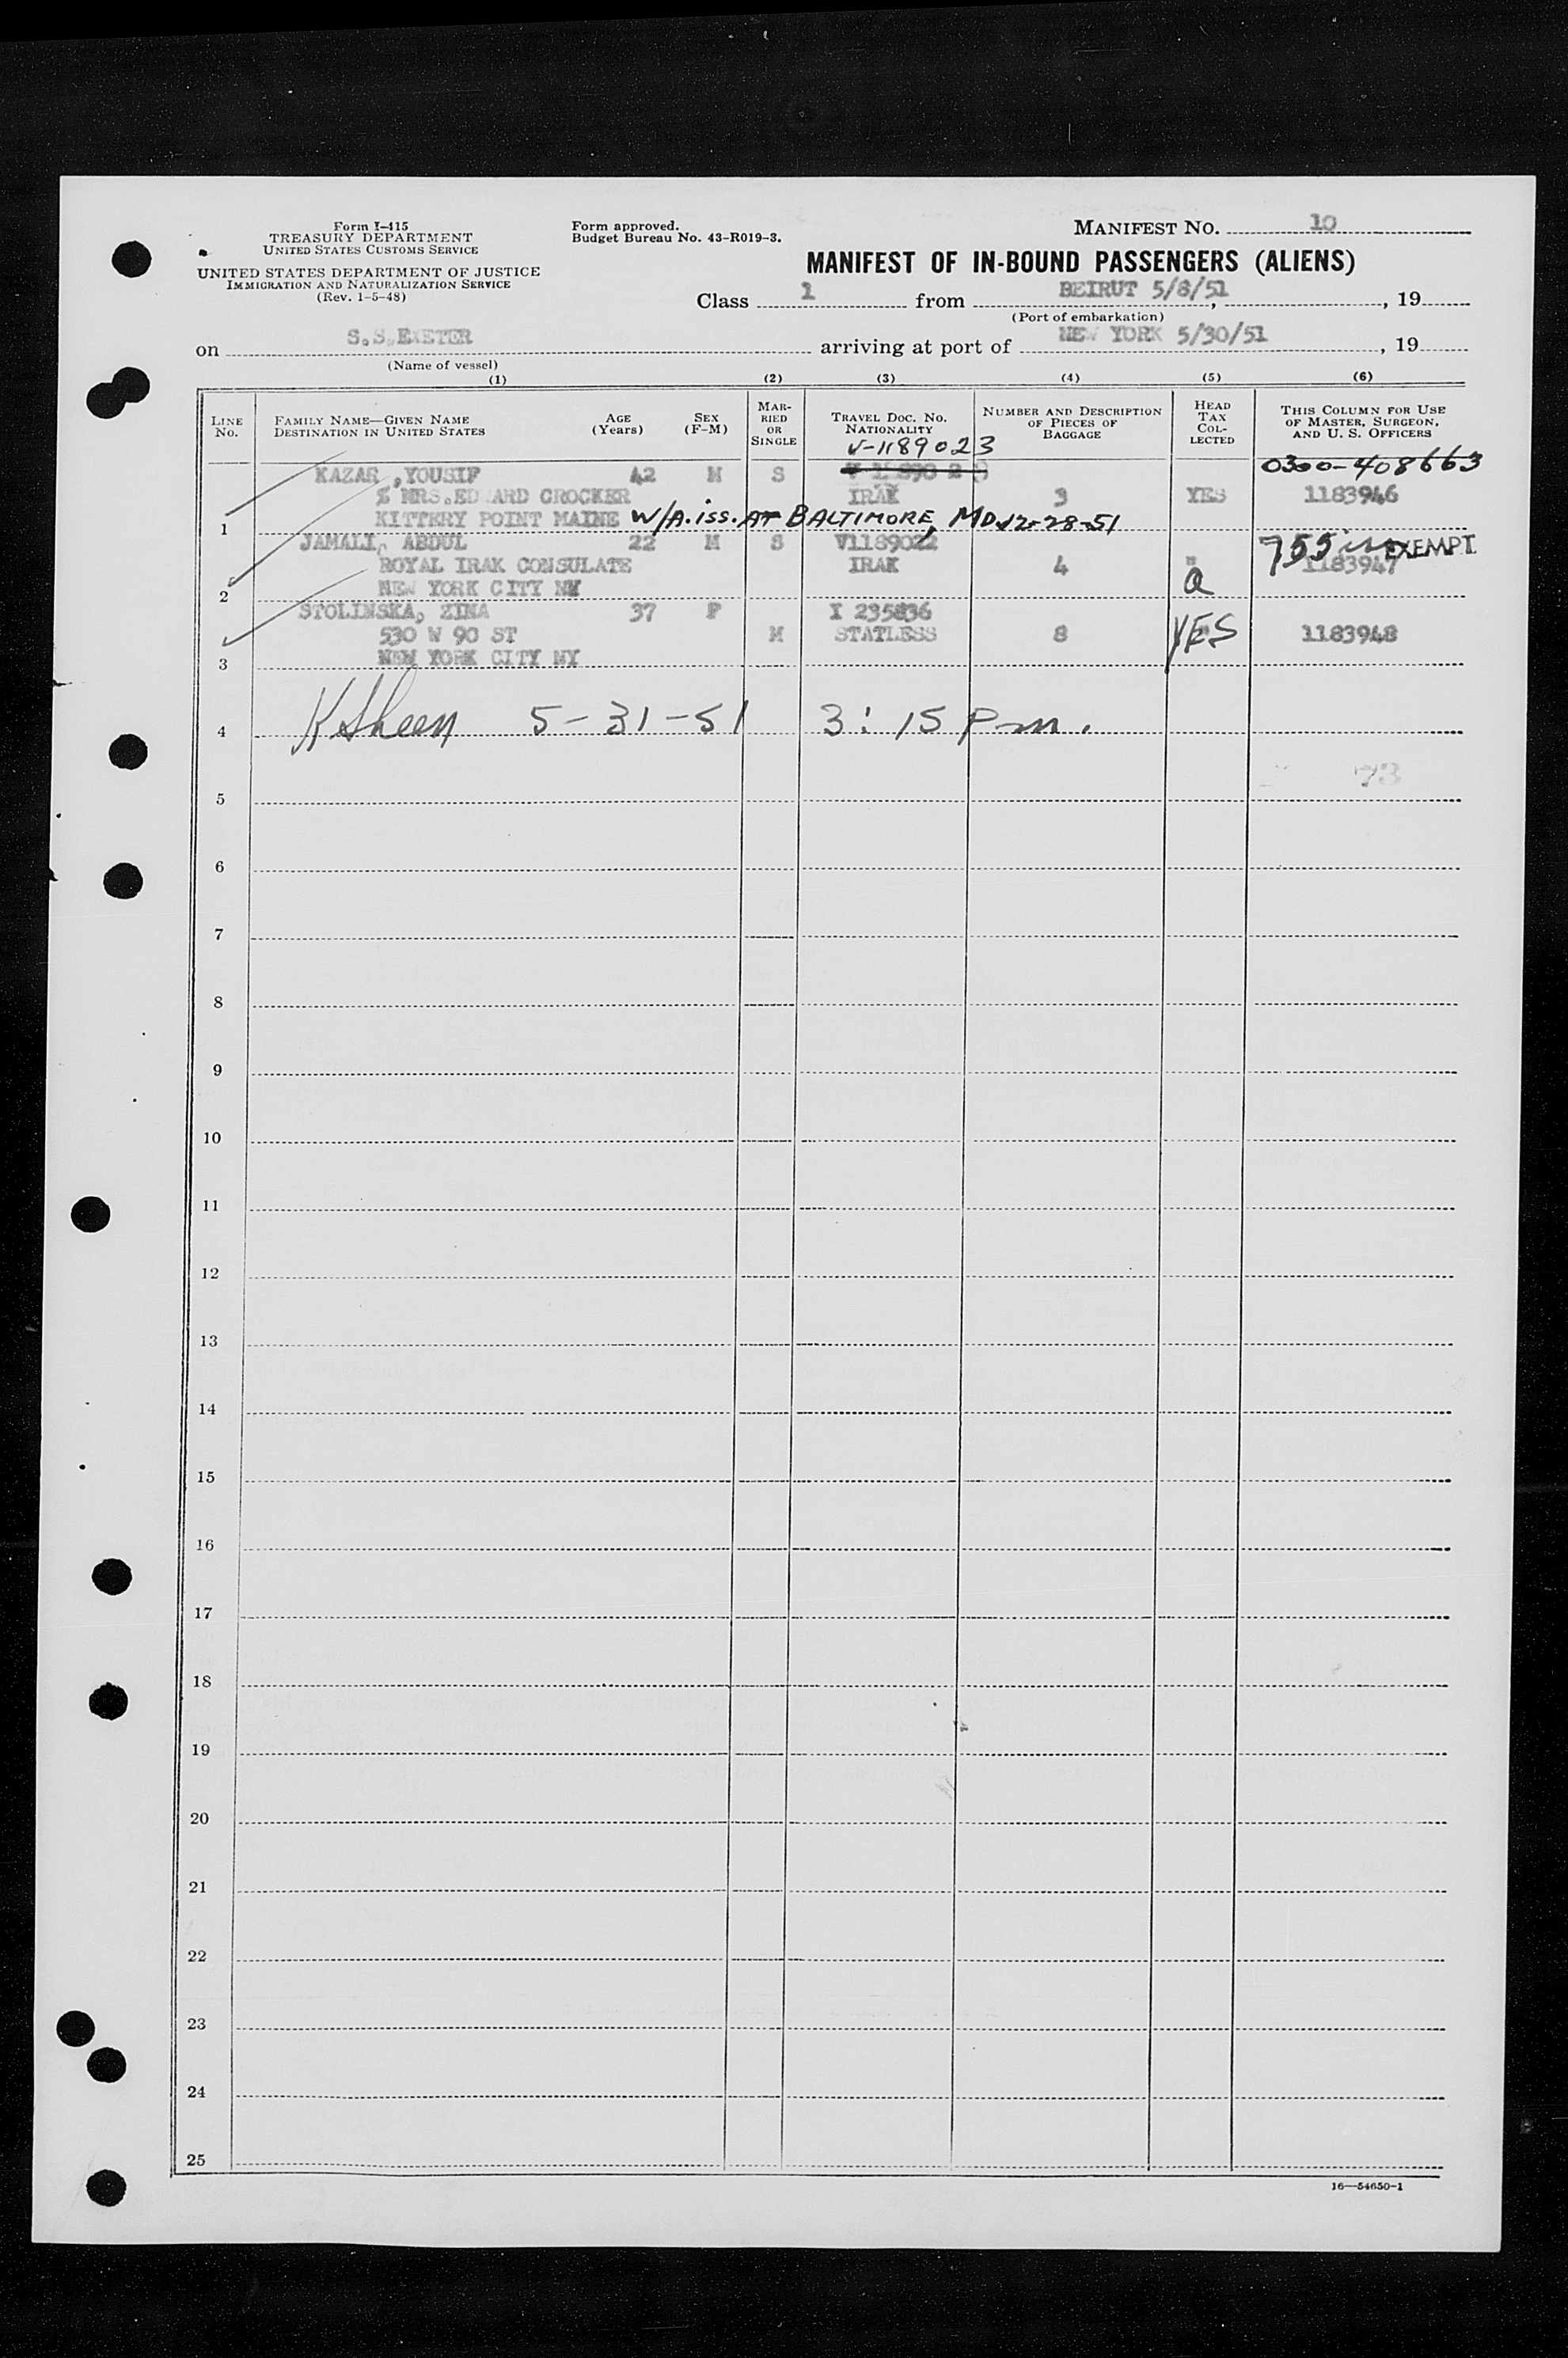 Form I-415
TREASURY DEPARTMENT
UNITED STATES CUSTOMS SERVICE
UNITED STATES DEPARTMENT OF JUSTICE
IMMIGRATION AND NATURALIZATION SERVICE
(Rev. 1-5-48)
Form approved.
Budget Bureau No. 43-R019-3.
MANIFEST NO. 10
MANIFEST OF IN-BOUND PASSENGERS (ALIENS)
Class 1 from BEIRUT 5/8/51, 19
(Port of embarkation)
on S.S.EXETER arriving at port of NEW YORK 5/30/51, 19
(Name of vessel)
(1) (2) (3) (4) (5) (6)
LINE NO.
FAMILY NAME—GIVEN NAME
DESTINATION IN UNITED STATES
AGE (Years)
SEX (F-M)
MARRIED OR SINGLE
TRAVEL DOC. NO. NATIONALITY
NUMBER AND DESCRIPTION OF PIECES OF BAGGAGE
HEAD TAX COLLECTED
THIS COLUMN FOR USE OF MASTER, SURGEON, AND U. S. OFFICERS
V-1189023
KAZAR ,YOUSIF 42 M S 0300-408663
% MRS.EDWARD CROCKER IRAK 3 YES 1183946
1 KITTERY POINT MAINE W/A. iss. AT BALTIMORE, MD 12-28-51
JAMALI, ABDUL 22 M S V1189022 755 EXEMPT
ROYAL IRAK CONSULATE IRAK 4 " 1183947
2 NEW YORK CITY NY a
STOLINSKA, ZINA 37 F I 235836
530 W 90 ST M STATLESS 8 YES 1183948
3 NEW YORK CITY NY
4 K Sheen 5-31-51 3:15 pm.
73
5
6
7
8
9
10
11
12
13
14
15
16
17
18
19
20
21
22
23
24
25
16—54650-1